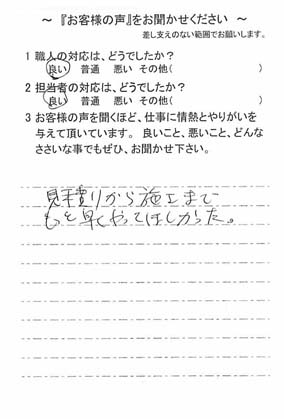 ～『お客様の声』をお聞かせください ～
差し支えのない範囲でお願いします。
1 職人の対応は、どうでしたか？
良い 普通 悪い その他( )
2 担当者の対応は、どうでしたか？
良い 普通 悪い その他( )
3 お客様の声を聞くほど、仕事に情熱とやりがいを
与えて頂いています。 良いこと、悪いこと、どんな
ささいな事でもぜひ、お聞かせ下さい。
見積りから施工まで
もっと早くやってほしかった。